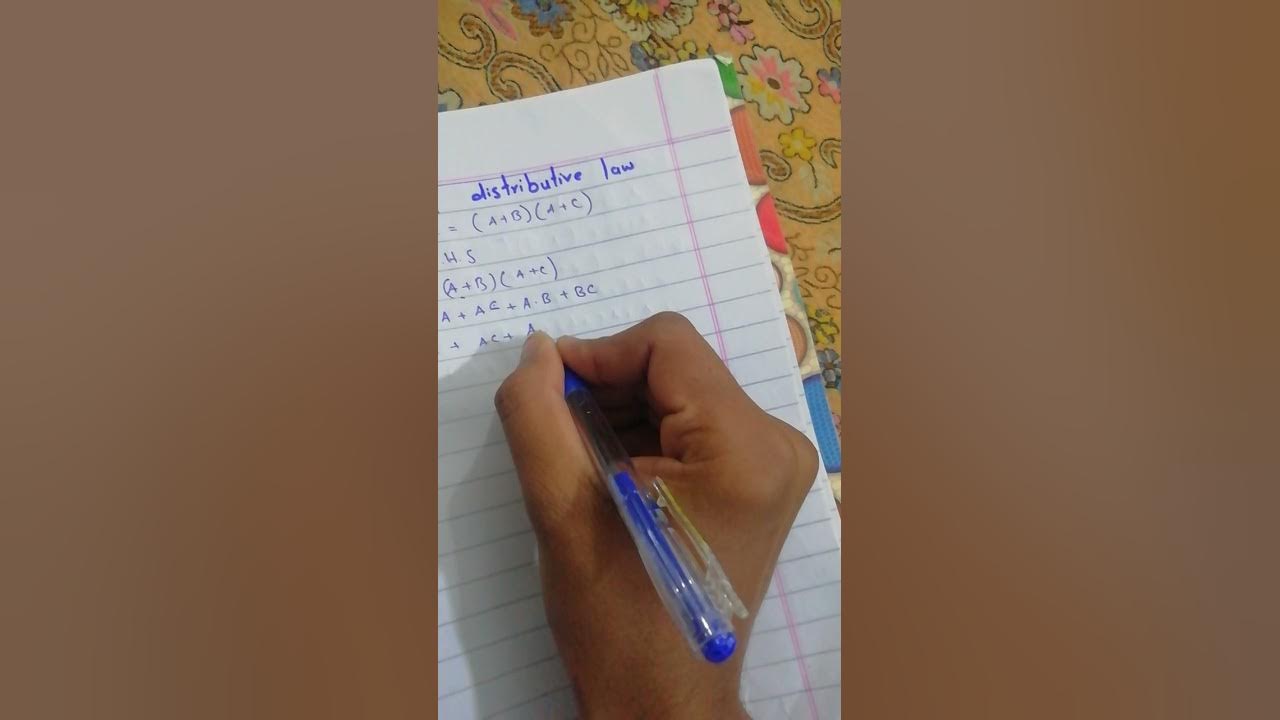 distributive law
= (A+B)(A+C)
.H.S
(A+B)(A+C)
A + AC + A.B + BC
+ AC + A